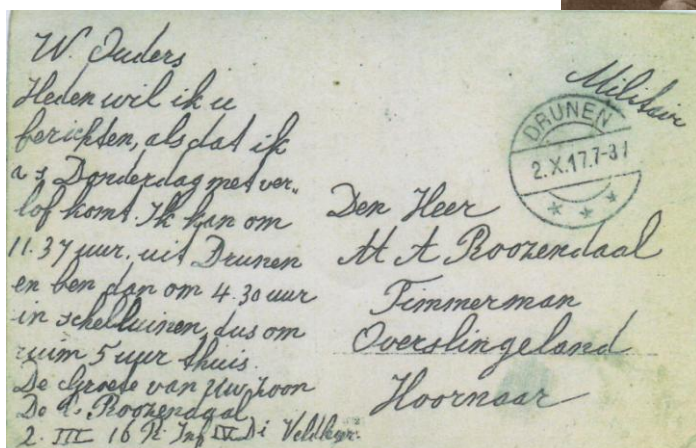 W. Ouders
Heden wil ik u
berichten, als dat ik
a s Donderdag met ver„
lof komt. Ik kan om
11.37 uur. uit Drunen
en ben dan om 4.30 uur
in schelluinen, dus om
ruim 5 uur thuis.
De Groete van Uw zoon
Roozendaal
2 III 16 R. Inf IV Di Veldleger.
Militair
DRUNEN
2.X.17.7-8
Den Heer
A Roozendaal
Timmerman
Overslingeland
Hoornaar